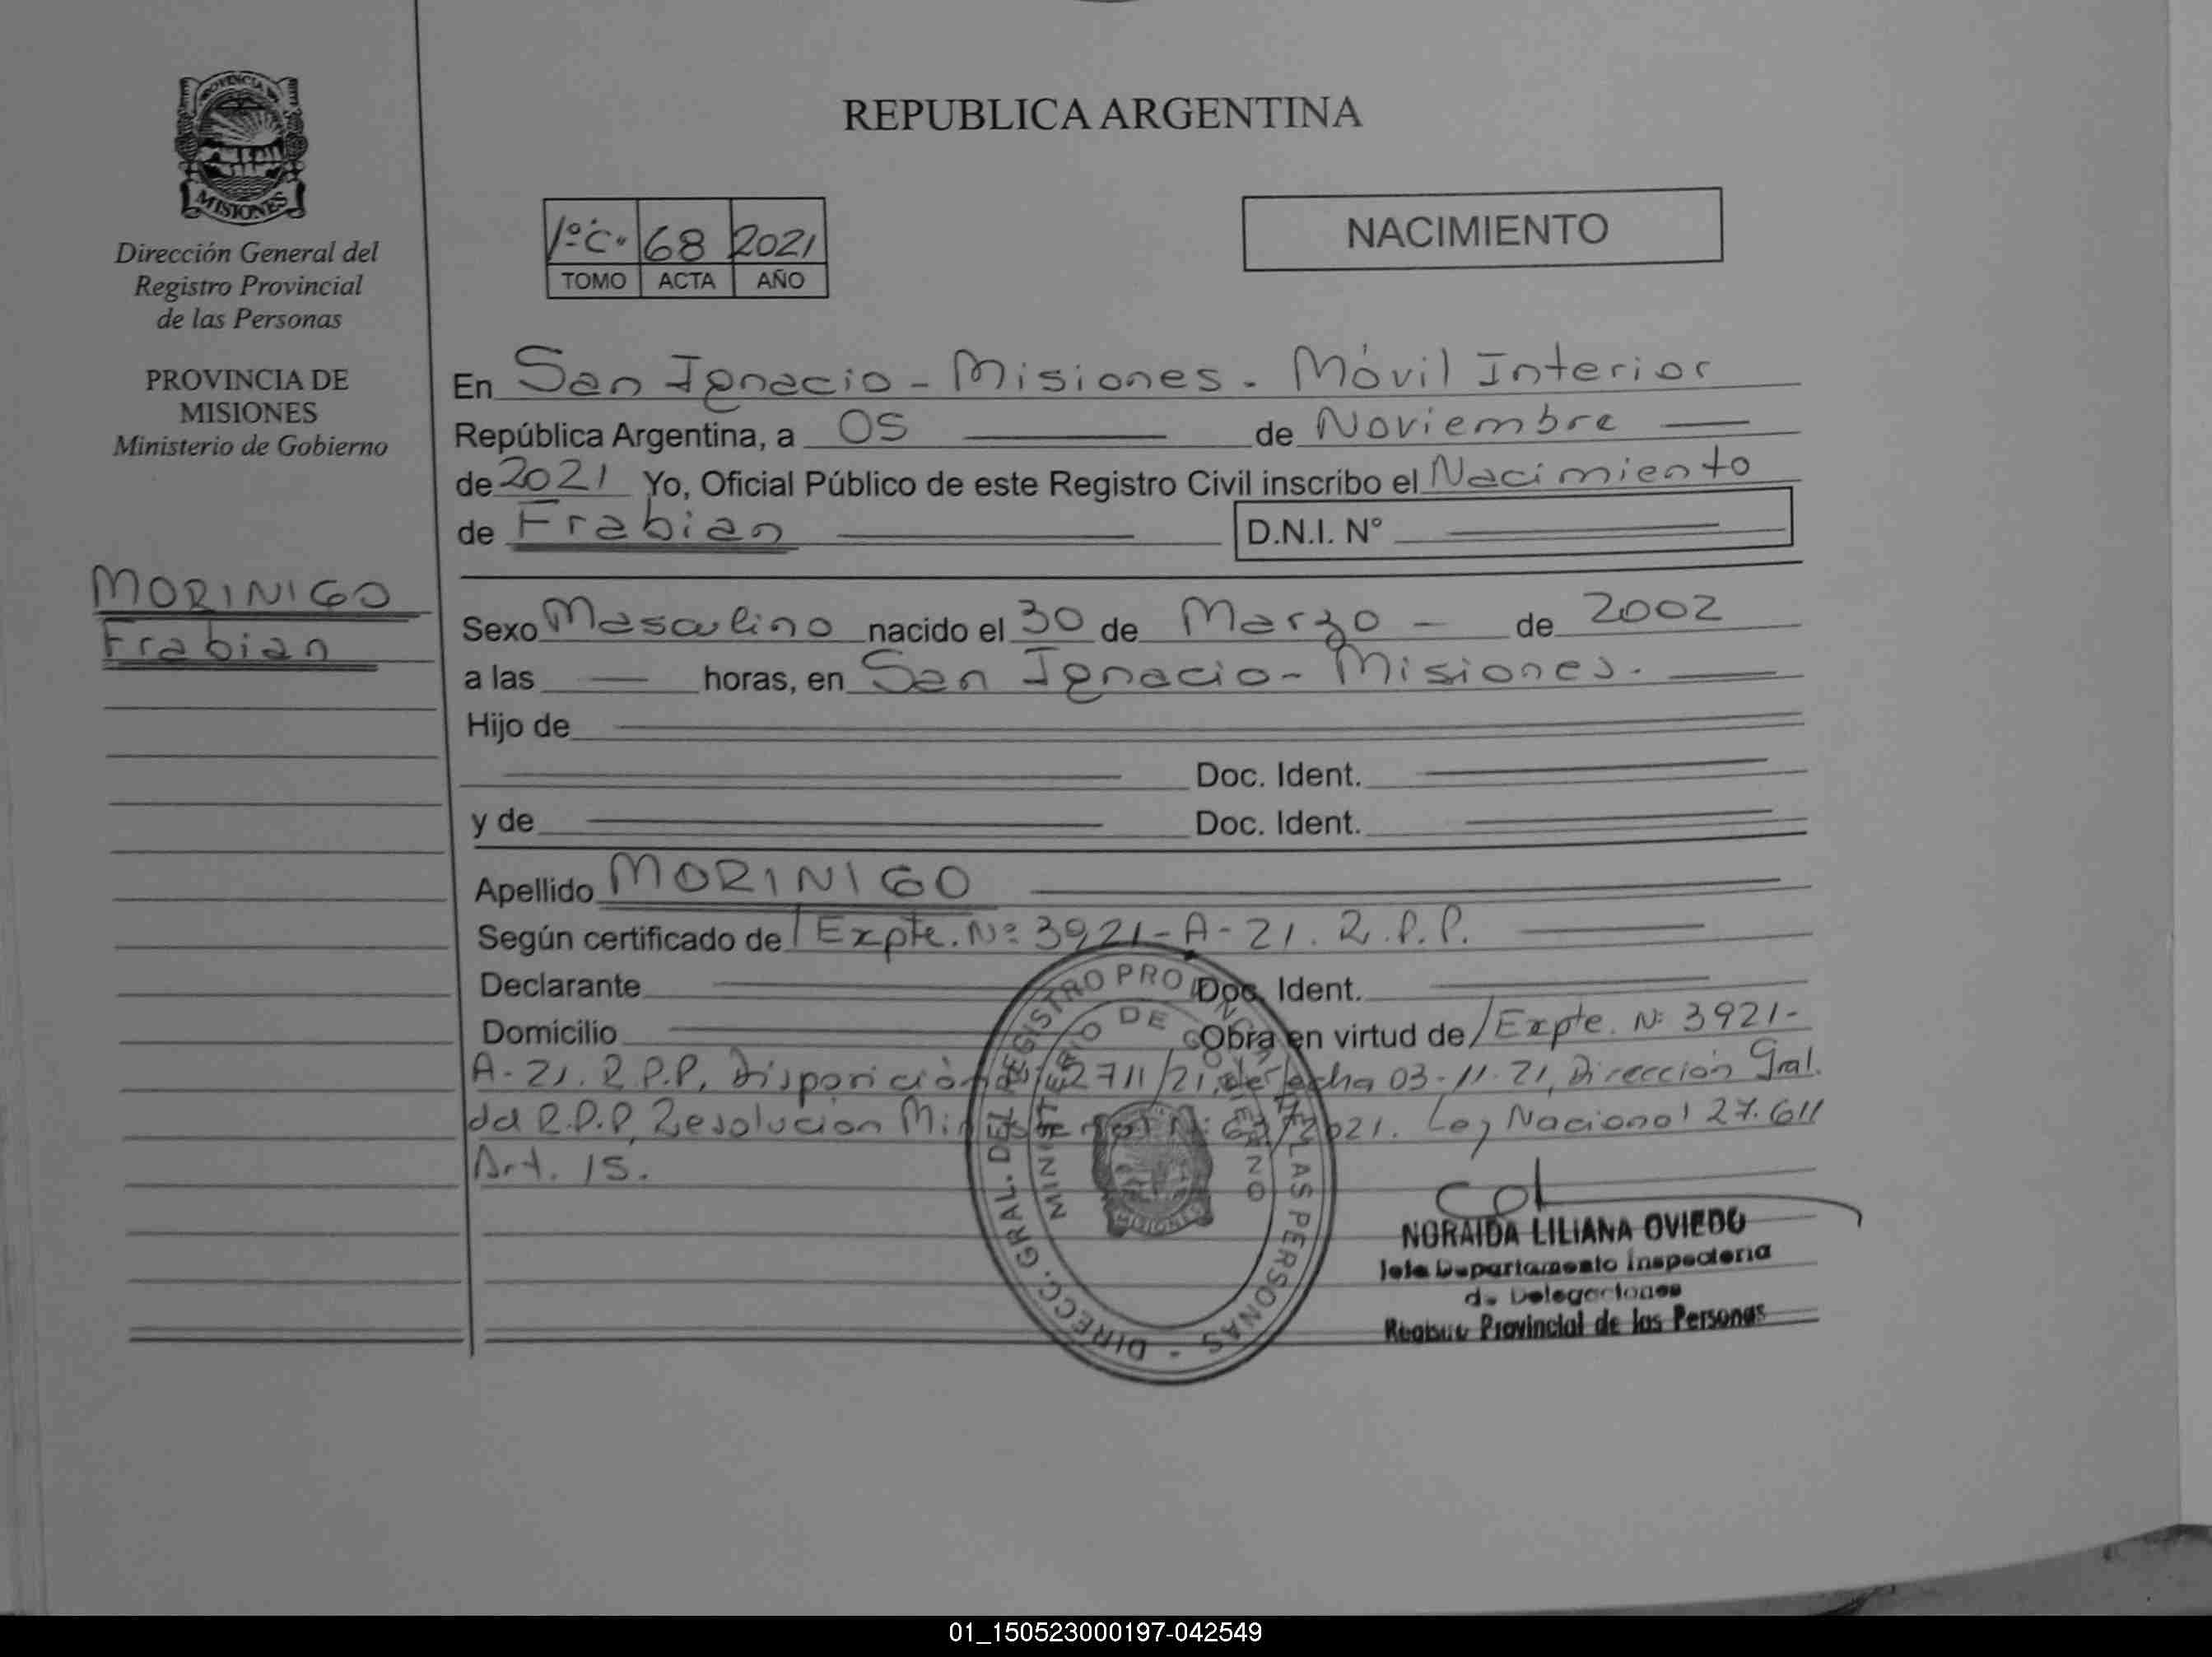 PROVINCIA DE
MISIONES
Dirección General del
Registro Provincial
de las Personas
PROVINCIA DE
MISIONES
Ministerio de Gobierno
MORINIGO
Frabian
REPUBLICA ARGENTINA
1º C. 68 2021
TOMO ACTA AÑO
NACIMIENTO
En San Ignacio - Misiones - Móvil Interior
República Argentina, a 05 de Noviembre
de 2021 Yo, Oficial Público de este Registro Civil inscribo el Nacimiento
de Frabian D.N.I. Nº
Sexo Masculino nacido el 30 de Marzo - de 2002
a las horas, en San Ignacio - Misiones.
Hijo de
Doc. Ident.
y de Doc. Ident.
Apellido MORINIGO
Según certificado de / Expte. Nº 3921-A-21. R.P.P.
Declarante Doc. Ident.
Domicilio Obra en virtud de / Expte. Nº 3921-
A-21. R.P.P, Disposición 2711/21, de fecha 03-11-21, Dirección Gral.
del R.P.P, Resolución /2021. Ley Nacional 27.611
Art. 15.
DIRECC. GRAL. DEL REGISTRO PROVINCIAL DE LAS PERSONAS -
MINISTERIO DE GOBIERNO
MISIONES
NORAIDA LILIANA OVIEDO
Jefe Departamento Inspectoria
de Delegaciones
Registro Provincial de las Personas
01_150523000197-042549